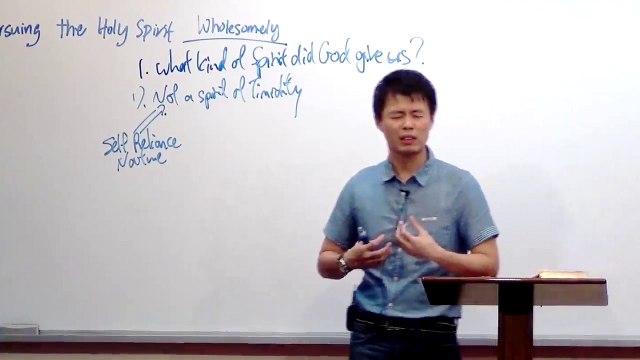 rsuing the Holy Spirit Wholesomely
1. What kind of Spirit did God give us?
1). Not a spirit of Timidity
Self Reliance